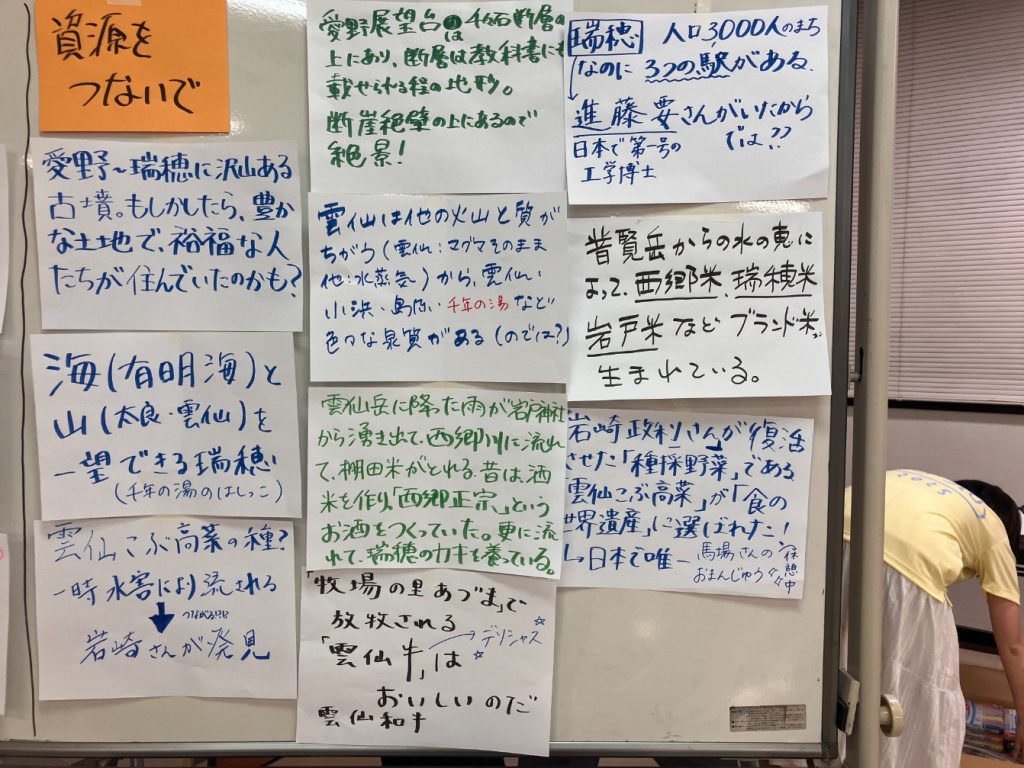 資源を
つないで
愛野〜瑞穂に沢山ある
古墳。もしかしたら、豊か
な土地で、裕福な人
たちが住んでいたのかも?
海(有明海)と
山(太良・雲仙)を
一望できる瑞穂
(千年の湯のはしっこ)
雲仙こぶ高菜の種?
一時水害により流される
岩崎さんが発見
愛野展望台は千々石断層の
上にあり、断層は教科書にも
載せられる程の地形。
断崖絶壁の上にあるので
絶景!
雲仙は他の火山と質が
ちがう(雲仙:マグマそのまま
他:水蒸気)から、雲仙・
小浜・島原・千年の湯など
色々な泉質がある(のでは?)
雲仙岳に降った雨が岩戸神社
から湧き出て、西郷川に流れ
て、棚田米がとれる。昔は酒
米を作り、「西郷正宗」という
お酒をつくっていた。更に流
れて、瑞穂のカキを養っている。
「牧場の里あづま」で
放牧される
「雲仙牛」は
デリシャス
おいしいのだ
雲仙和牛
瑞穂 人口3,000人のまち
なのに3つの駅がある.
進藤要さんがいたから
では??
日本で第一号の
工学博士
普賢岳からの水の恵に
よって、西郷米、瑞穂米
岩戸米などブランド米が
生まれている。
岩崎政利さんが復活
させた「種採野菜」である
雲仙こぶ高菜」が「食の
世界遺産」に選ばれた!
日本で唯一
馬場さんの
おまんじゅう
休憩中
2025